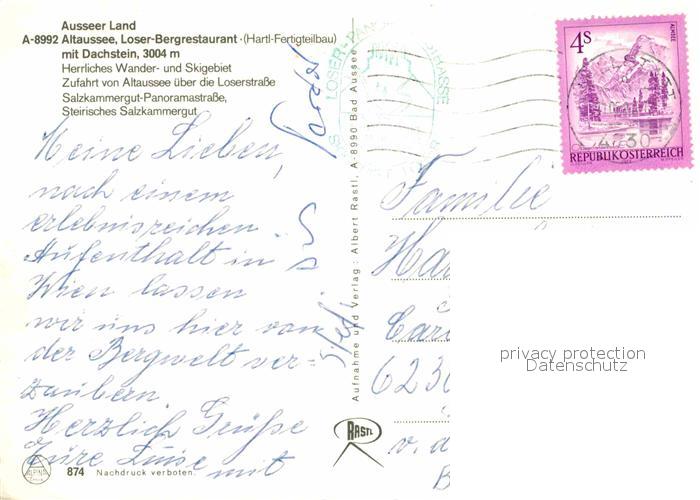 Ausseer Land
A-8992 Altaussee, Loser-Bergrestaurant · (Hartl-Fertigteilbau)
mit Dachstein, 3004 m
Herrliches Wander- und Skigebiet
Zufahrt von Altaussee über die Loserstraße
Salzkammergut-Panoramastraße,
Steirisches Salzkammergut
Meine Lieben,
nach einem
erlebnisreichen
Aufenthalt in
Wien lassen
wir uns hier von
der Bergwelt ver=
zaubern
Herzlich Grüße
Eure Luise mit
874 Nachdruck verboten
Aufnahme und Verlag: Albert Rastl, A-8990 Bad Aussee
RASTL
LOSER-PA STRASSE
4S
ALMSEE
REPUBLIK ÖSTERREICH
Familie
623
v. d
privacy protection
Datenschutz